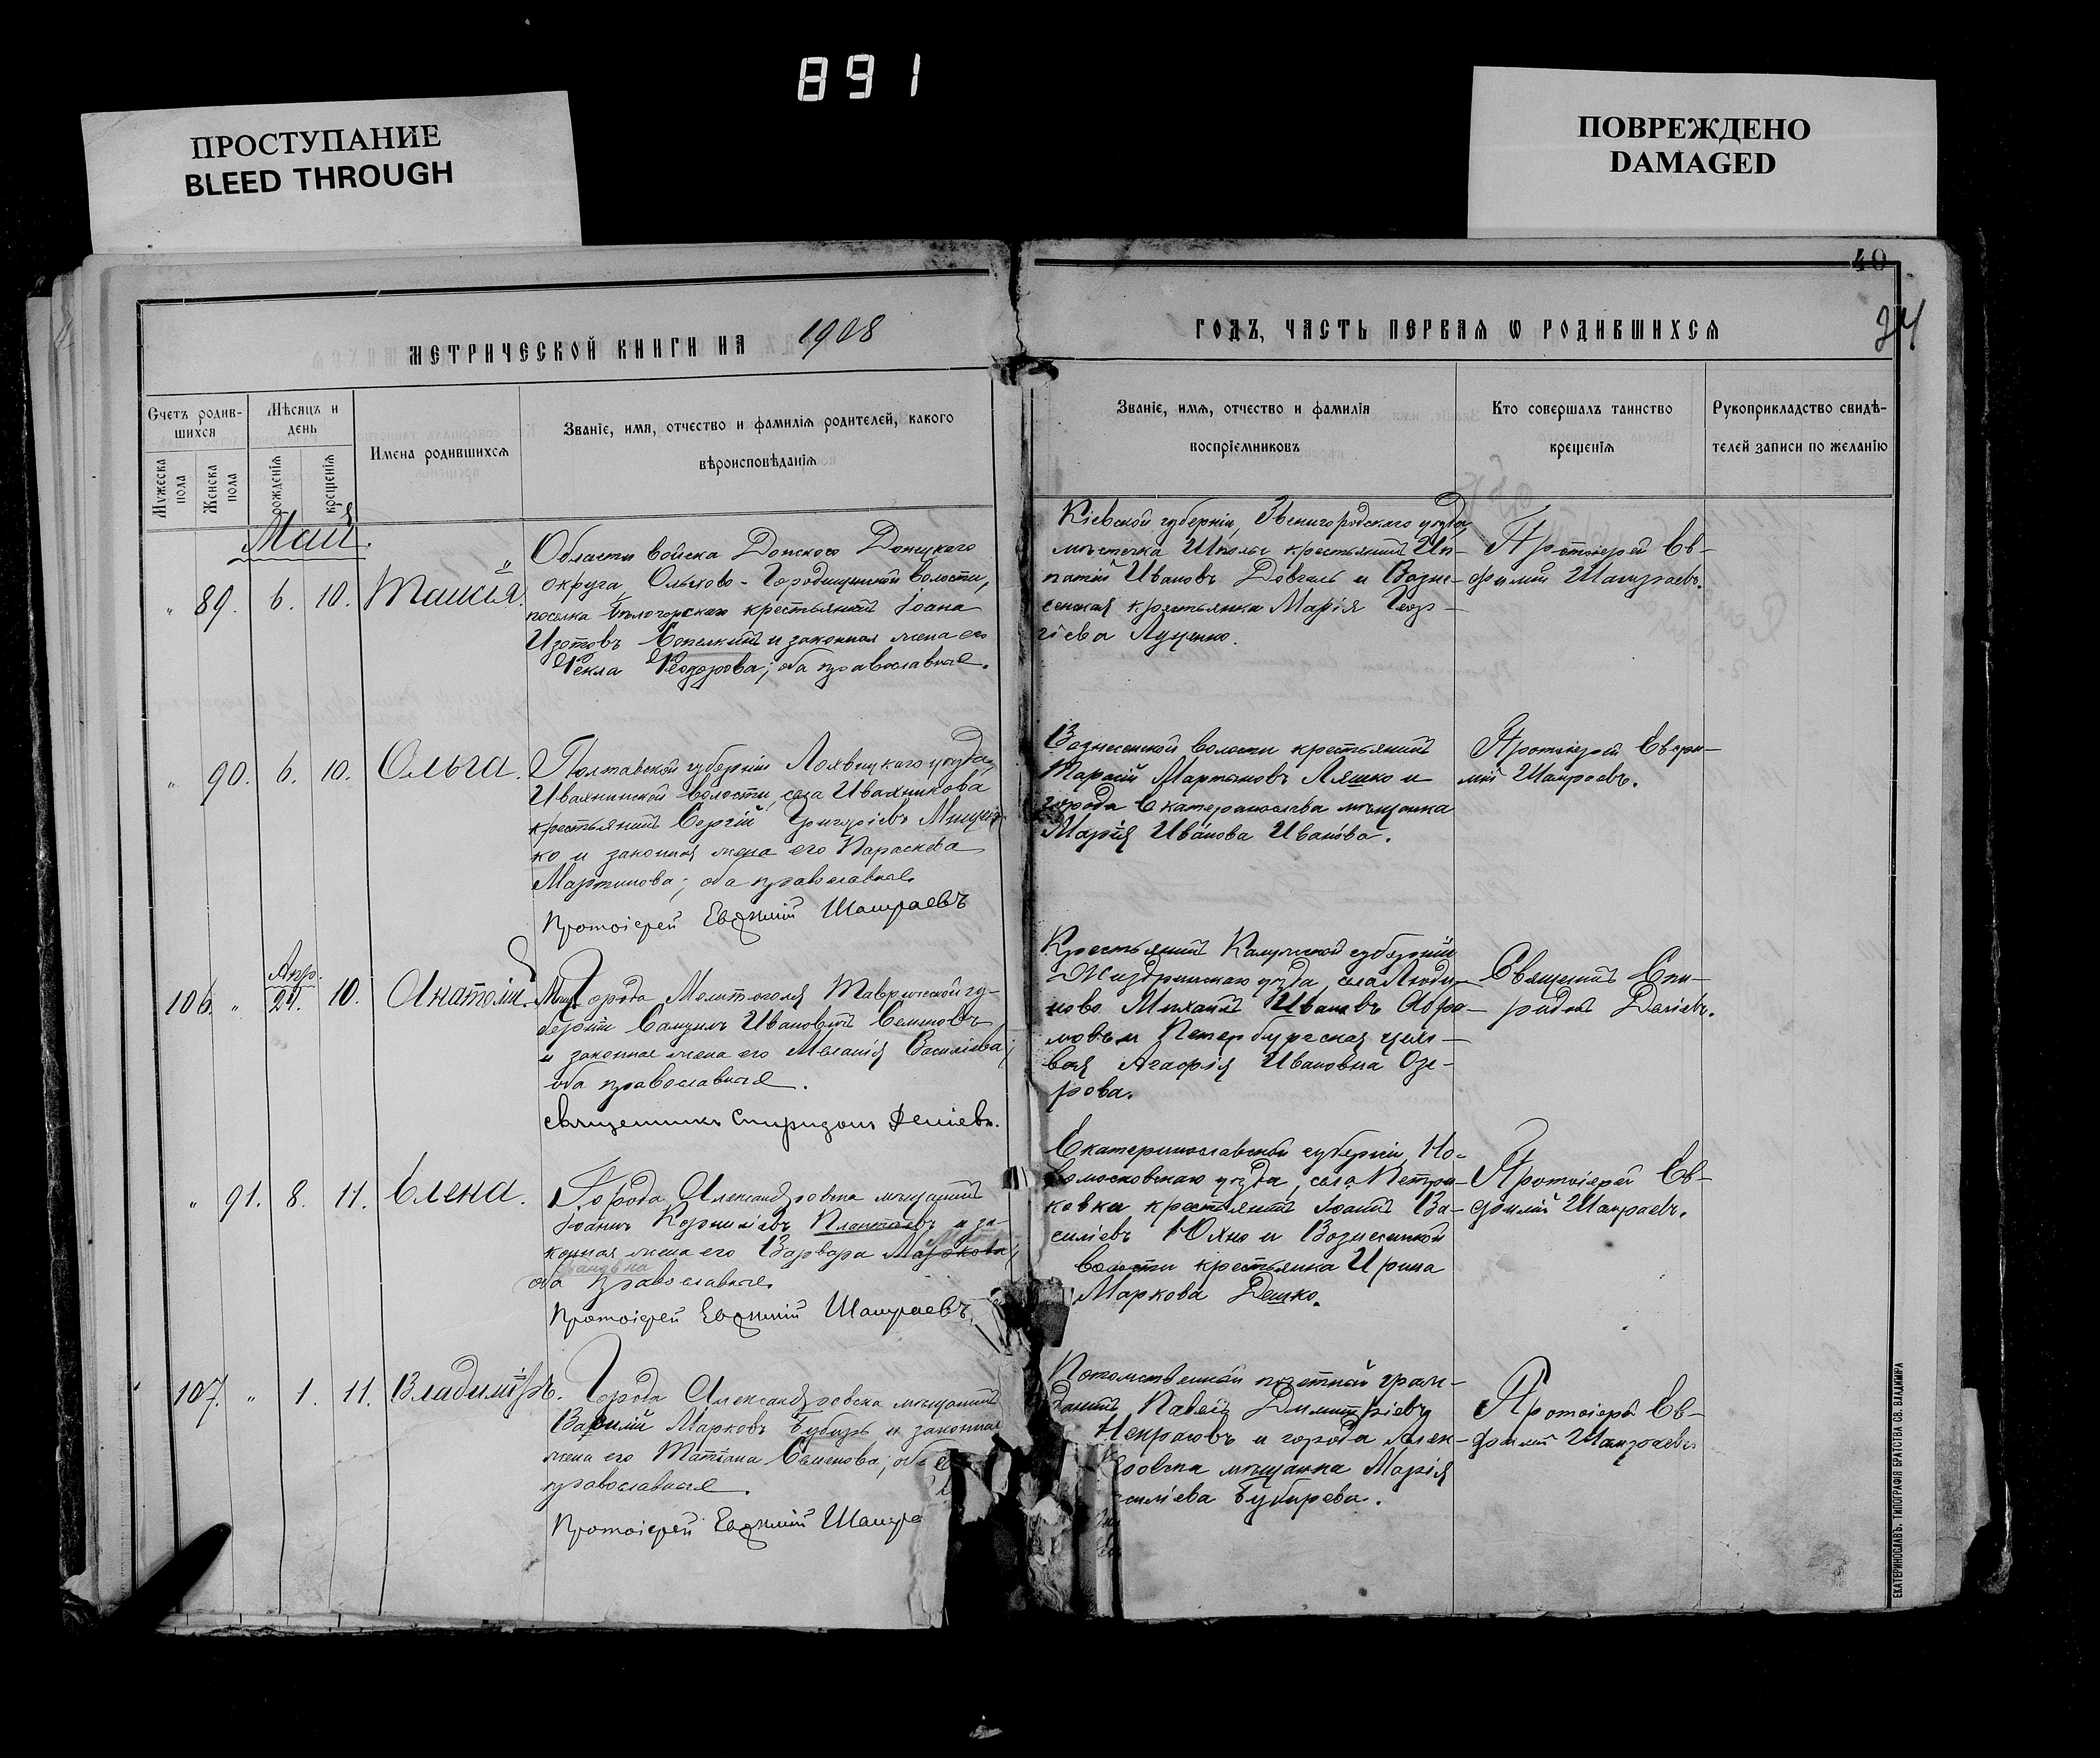 891
ПРОСТУПАНИЕ
BLEED THROUGH
ПОВРЕЖДЕНО
DAMAGED
40
34
МЕТРИЧЕСКОЙ КНИГИ НА 1908
ГОДЪ, ЧАСТЬ ПЕРВАЯ Ѡ РОДИВШИХСЯ
Счетъ родив-
шихся
Мужеска пола
Женска пола
Мѣсяцъ и
день
рожденія
крещенія
Имена родившихся
Званіе, имя, отчество и фамилія родителей, какого
вѣроисповѣданія
Званіе, имя, отчество и фамилія
воспріемниковъ
Кто совершалъ таинство
крещенія
Рукоприкладство свидѣ-
телей записи по желанію
Май.
" 89. 6. 10. Таисія.
Области войска Донского Донецкаго
округа, Ольхово-Городищенской волости,
поселка крестьянинъ Іоанъ
Изотовъ и законная жена его
Ѳекла Ѳеодорова; оба православные.
Кіевской губерніи, Звенигородскаго уѣзда,
мѣстечка Шполы крестьянинъ Ип-
патій Ивановъ Довгаль и Возне-
сенская крестьянка Марія Геор-
гіева Луценко.
Протоіерей Ев-
фимій Шамраевъ.
" 90. 6. 10. Ольга.
Полтавской губерніи Лохвицкаго уѣзда,
Ивахникской волости, села Ивахникова
крестьянинъ Сергій Григоріевъ Мищен-
ко и законная жена его Параскева
Мартинова; оба православные.
Протоіерей Евфимій Шамраевъ
Вознесенской волости крестьянинъ
Тарасій Мартыновъ Ляшко и
города Екатеринослава мѣщанка
Марія Иванова Иванова.
Протоіерей Евфи-
мій Шамраевъ.
106. " Апр. 29. 10. Анатолій.
Города Мелитополя Таврической гу-
берніи Самуилъ Ивановъ Семеновъ
и законная жена его Меланія Василіева;
оба православные.
Священникъ Спиридонъ Деліевъ.
Крестьянинъ Калужской губерніи
Жиздринскаго уѣзда, села Люди-
ново Михаилъ Ивановъ Абра-
мовъ и Петербургская
Агафія Ивановна Озе-
рова.
Священникъ Спи-
ридонъ Деліевъ.
" 91. 8. 11. Елена.
Города Александровска мѣщанинъ
Іоаннъ Корниліевъ Плахтіевъ и за-
конная жена его Варвара Маркова;
оба православные.
Протоіерей Евфимій Шамраевъ
Екатеринославской губерніи, Но-
вомосковскаго уѣзда, села Петри-
ковки крестьянинъ Іоаннъ Ва-
силіевъ Юхно и Вознесенской
волости крестьянка Ирина
Маркова Дешко.
Протоіерей Ев-
фимій Шамраевъ.
107. " 1. 11. Владиміръ.
Города Александровска мѣщанинъ
Василій Марковъ Бубырь и законная
жена его Татіана Семенова; оба
православные.
Протоіерей Евфимій Шамра
Потомственный почетный граж-
данинъ Павелъ Димитріевъ
Некрасовъ и города Алек-
ровска мѣщанка Марія
силіева Бубырева.
Протоіерей Ев-
фимій Шамраевъ
ЕКАТЕРИНОСЛАВЪ. ТИПОГРАФІЯ БРАТСТВА СВ. ВЛАДИМІРА